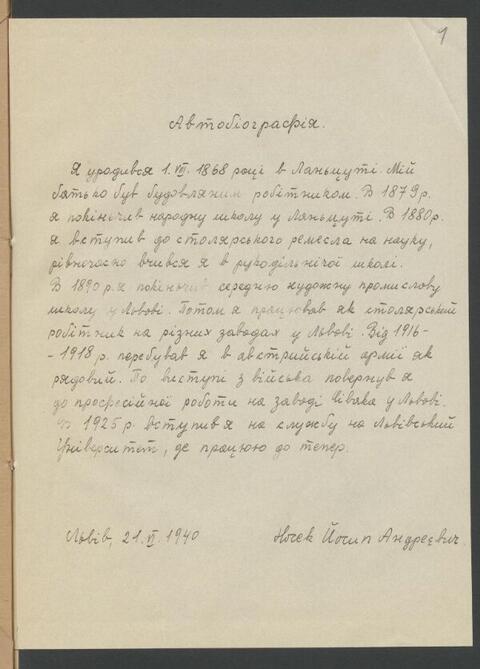 1
Автобіографія.
Я уродився 1.VII. 1868 році в Ланьцуті. Мій
батько був будовляним робітником. В 1879 р.
я покінчив народну школу у Ланьцуті. В 1880 р.
я вступив до столярського ремесла на науку,
рівночасно вчився я в рукодільнічої школі.
В 1890 р. я покінчив середню художну промислову
школу у Львові. Потом я працював як столярский
робітник на різних заводах у Львові. Від 1916-
-1918 р. перебував я в австрийській армії як
рядовий. По виступі з війська повернув я
до професійної роботи на заводі у Львові.
В 1925 р. вступив я на службу на Львівський
Університет, де працюю до тепер.
Львів, 21.VI. 1940 Йосип Андреєвич.